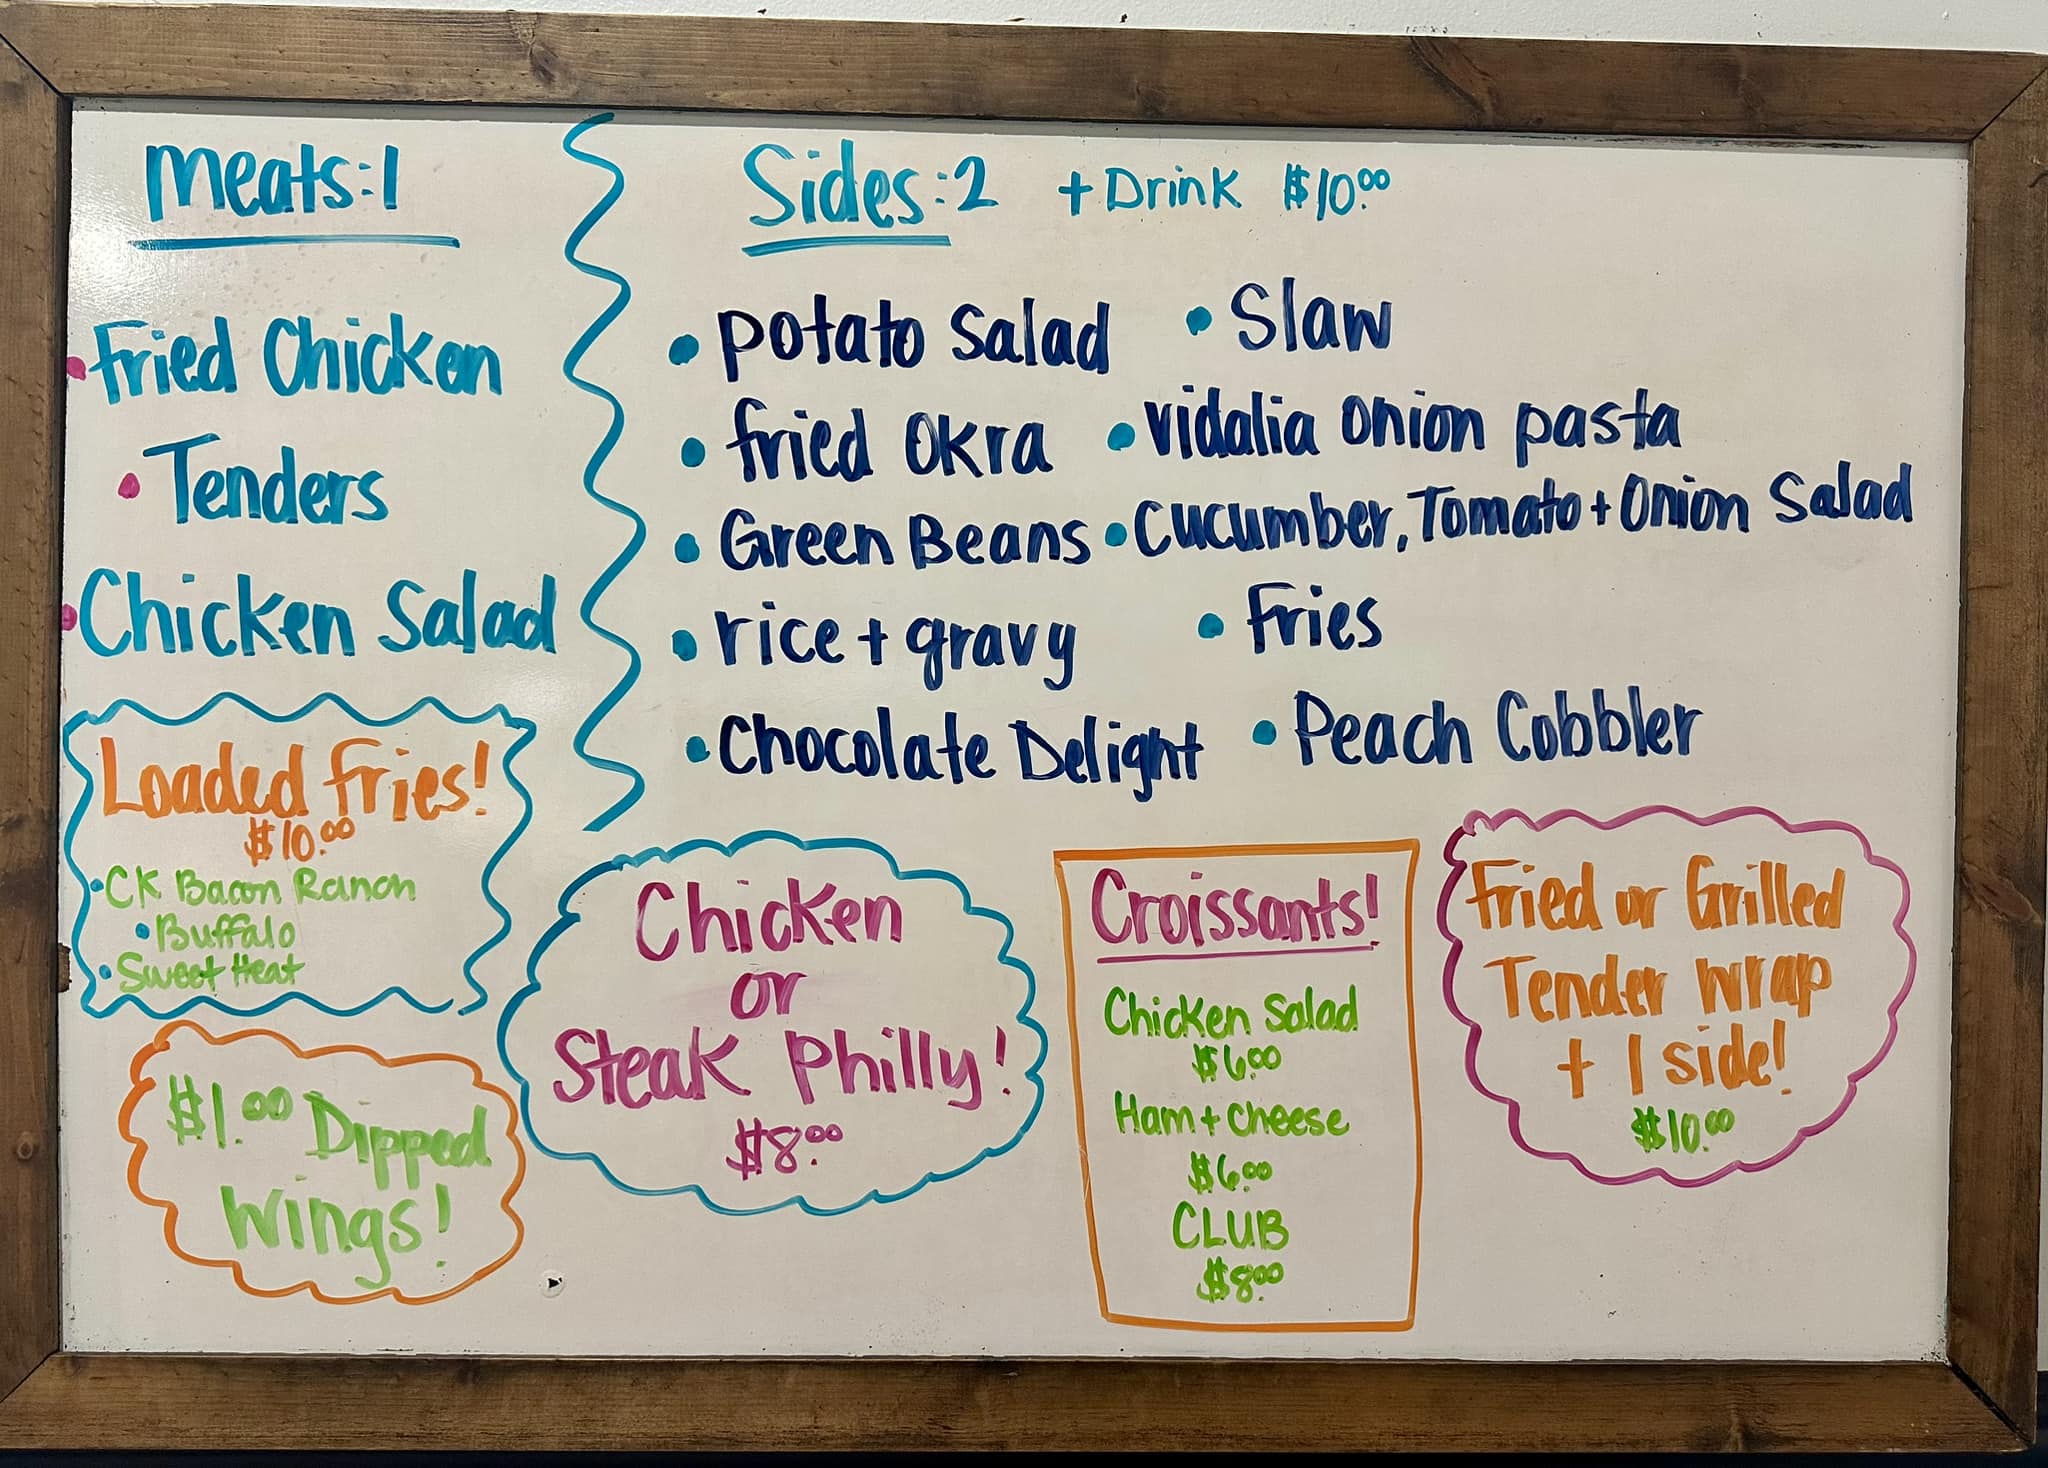 Meats:1
Fried Chicken
Tenders
Chicken Salad
Sides:2 + Drink $10.00
Potato Salad
Slaw
fried Okra
Vidalia Onion pasta
Green Beans
Cucumber, Tomato + Onion Salad
rice + gravy
Fries
Chocolate Delight
Peach Cobbler
Loaded fries!
$10.00
CK Bacon Ranch
Buffalo
Sweet Heat
$1.00 Dipped
Wings!
Chicken
or
Steak Philly!
$8.00
Croissants!
Chicken Salad
$6.00
Ham + Cheese
$6.00
CLUB
$8.00
Fried or Grilled
Tender Wrap
+ 1 side!
$10.00